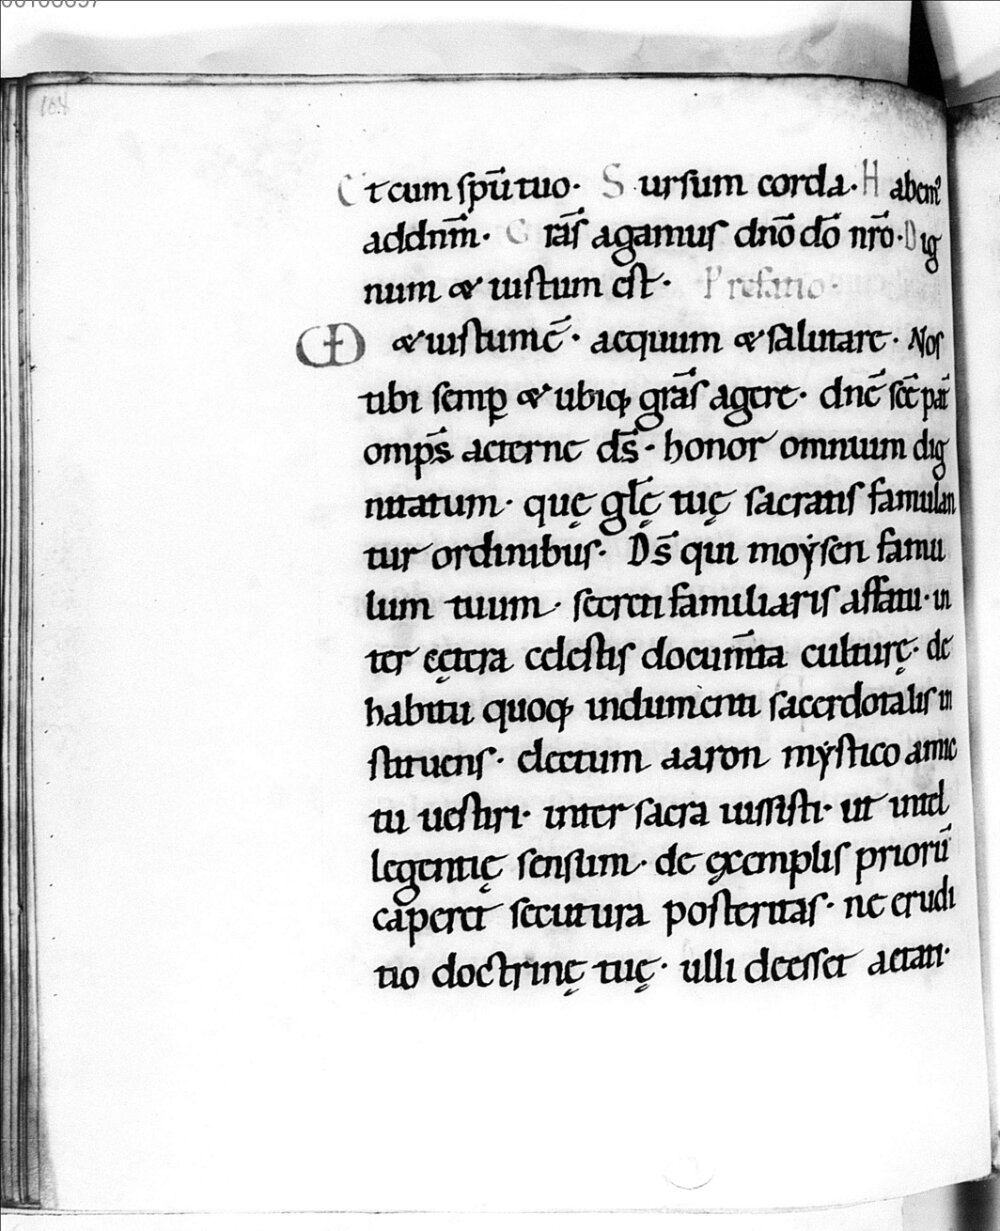 Et cum spū tuo· Sursum corda· Habem⁹
addnm̄· Grās agamus dnō dō nrō· Dig
num & iustum est· Prefatio·
VD & iustum ē· aequum & salutare· Nos
tibi semp̄ & ubiq; grās agere· dnē scē pat̄
omps̄ aeterne ds̄· honor omnium dig
nitatum· quę glę̄ tuę sacratis famulan
tur ordinibus· Ds̄ qui moẏsen famu
lum tuum· secreti familiaris affatu· in
ter cętera celestis docum̄ta culturę· de
habitu quoq; indumenti sacerdotalis in
stituens· electum aaron mẏstico amic
tu uestiri· inter sacra iussisti· ut intel
legentię sensum· de ęxemplis priorū
caperet secutura posteritas· ne erudi
tio doctrinę tuę· ulli deesset aetati·